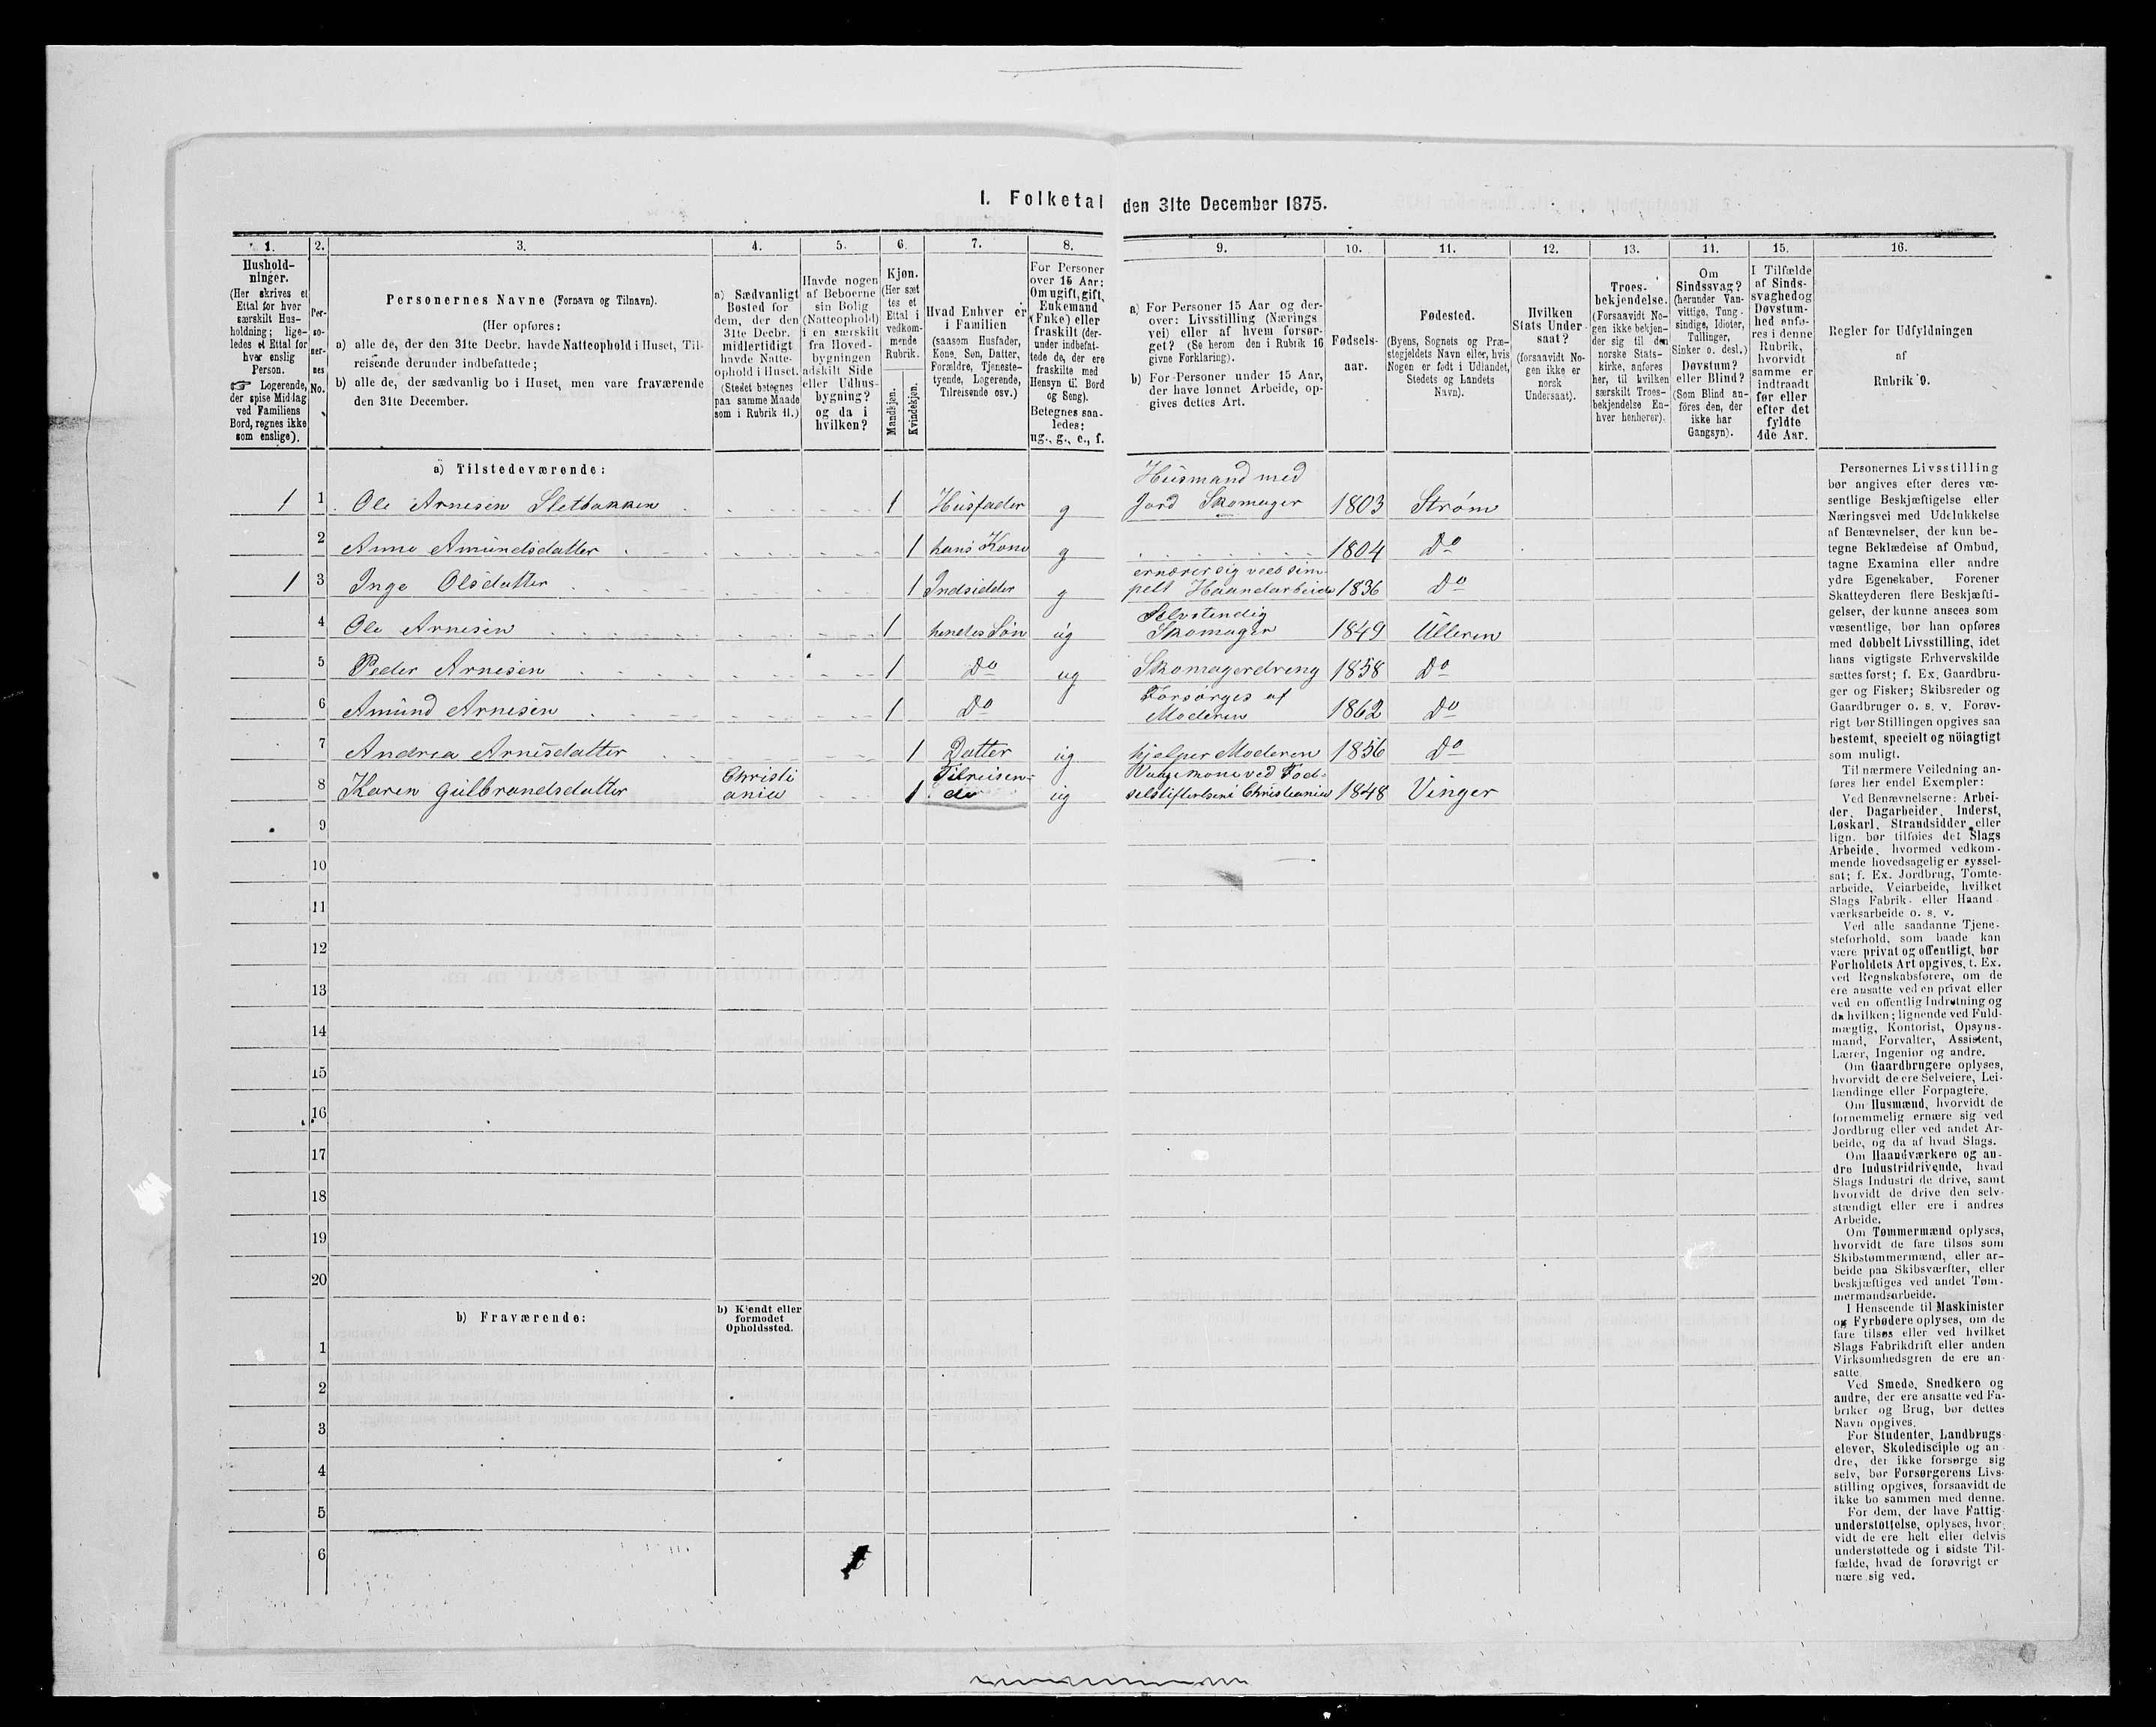 I. Folketal den 31te December 1875.
1. 2. 3. 4. 5. 6. 7. 8. 9. 10. 11. 12. 13. 14. 15. 16.
Hushold-
ninger.
(Her skrives et
Ettal for hver
særskilt Hus-
holdning; lige-
ledes et Ettal for
hver enslig
Person.
☞ Logerende,
der spise Middag
ved Familiens
Bord, regnes ikke
som enslige).
Per-
so-
ner-
nes
No.
Personernes Navne (Fornavn og Tilnavn).
(Her opføres:
a) alle de, der den 31te Decbr. havde Natteophold i Huset, Til-
reisende derunder indbefattede;
b) alle de, der sædvanlig bo i Huset, men vare fraværende
den 31te December.
a) Sædvanligt
Bosted for
dem, der den
31te Decbr.
midlertidigt
havde Natte-
ophold i Huset.
(Stedet betegnes
paa samme Maade
som i Rubrik 11.)
Havde nogen
af Beboerne
sin Bolig
(Natteophold)
i en særskilt
fra Hoved-
bygningen
adskilt Side
eller Udhus-
bygning?
og da i
hvilken?
Kjøn.
(Her sæt
tes et
Ettal i
vedkom-
mende
Rubrik.
Mandkjøn.
Kvindekjøn.
Hvad Enhver er
i Familien
(saasom Husfader,
Kone, Søn, Datter,
Forældre, Tjeneste-
tyende, Logerende,
Tilreisende osv.)
For Personer
over 15 Aar:
Om ugift, gift,
Enkemand
(Enke) eller
fraskilt (der-
under indbefat-
tede de, der ere
fraskilte med
Hensyn til Bord
og Seng).
Betegnes saa-
ledes:
ug., g., e., f.
a) For Personer 15 Aar og der-
over: Livsstilling (Nærings
vei) eller af hvem forsør-
get? (Se herom den i Rubrik 16
givne Forklaring).
b) For Personer under 15 Aar,
der have lønnet Arbeide, op-
gives dettes Art.
Fødsels-
aar.
Fødested.
(Byens, Sognets og Præ-
stegjeldets Navn eller, hvis
Nogen er født i Udlandet,
Stedets og Landets
Navn).
Hvilken
Stats Under-
saat?
(forsaavidt No-
gen ikke er
norsk
Undersaat).
Troes-
bekjendelse.
(Forsaavidt No-
gen ikke bekjen-
der sig til den
norske Stats-
kirke, anføres
her, til hvilken
særskilt Troes-
bekjendelse En-
hver henhører).
Om
Sindssvag?
(herunder Van-
vittige, Tung-
sindige, Idioter,
Tullinger,
Sinker o. desl.)
Døvstum?
eller Blind?
(Som Blind an-
føres den, der
ikke har
Gangsyn).
I Tilfælde
af Sinds-
svaghed og
Døvstum-
hed anfø-
res i denne
Rubrik,
hvorvidt
samme er
indtraadt
før eller
efter det
fyldte
4de Aar.
Regler for Udfyldningen
af
Rubrik 9.
a) Tilstedeværende:
Husmand med
1 1 Ole Arnesen Sletbakken 1 Husfader g Jord Skomager 1803 Strøm
2 Anne Amundsdatter 1 hans Kone g 1804 Do
ernærer sig ved sim-
1 3 Inge Olsdatter 1 Indsidder g pelt Haandarbeide 1836 Do
Selvstendig
4 Ole Arnesen 1 hendes Søn ug Skomager 1849 Ulleren
5 Peder Arnesen 1 Do ug Skomagerdreng 1858 Do
Forsørges af
6 Amund Arnesen 1 Do Moderen 1862 Do
7 Andrea Arnesdatter 1 Datter ug hjelper Moderen 1856 Do
Christi Tilreisen- ved Fød-
8 Karen Gulbrandsdatter ania 1 de ug selstiftelsen i Christiania 1848 Vinger
9
10
11
12
13
14
15
16
17
18
19
20
b) Fraværende:
b) Kjendt eller
formodet
Opholdssted.
1
2
3
4
5
6
Personernes Livsstilling
bør angives efter deres væ-
sentlige Beskjæftigelse eller
Næringsvei med Udelukkelse
af Benævnelser, der kun be-
tegne Beklædelse af Ombud,
tagne Examina eller andre
ydre Egenskaber. Forener
Skatteyderen flere Beskjæfti-
gelser, der kunne ansees som
væsentlige, bør han opføres
med dobbelt Livsstilling, idet
hans vigtigste Erhvervskilde
sættes først; f. Ex. Gaardbru-
ger og Fisker; Skibsreder og
Gaardbruger o. s. v. Forøv-
rigt bør Stillingen opgives saa
bestemt, specielt og nöiagtigt
som muligt.
Til nærmere Veiledning an-
føres her endel Exempler:
Ved Benævnelserne: Arbei-
der, Dagarbeider, Inderst,
Løskarl, Strandsidder eller
lign. bør tilføies det Slags
Arbeide, hvormed vedkom-
mende hovedsagelig er syssel-
sat; f. Ex. Jordbrug, Tomte-
arbeide, Veiarbeide, hvilket
Slags Fabrik- eller Haand-
værksarbeide o. s. v.
Ved alle saadanne Tjene-
steforhold, som baade kan
være privat og offentligt, bør
Forholdets Art opgives, t. Ex.
ved Regnskabsførere, om de
ere ansatte ved en privat eller
ved en offentlig Indretning og
da hvilken; lignende ved Fuld-
mægtig, Kontorist, Opsyns-
mand, Forvalter, Assistent,
Lærer, Ingeniør og andre.
Om Gaardbrugere oplyses,
hvorvidt de ere Selveiere, Lei-
lændinge eller Forpagtere.
Om Husmænd, hvorvidt de
fornemmelig ernære sig ved
Jordbrug eller ved andet Ar-
beide, og da af hvad Slags.
Om Haandværkere og an-
dre Industridrivende, hvad
Slags Industri de drive, samt
hvorvidt de drive den selv-
stændigt eller ere i andres
Arbeide.
Om Tømmermænd oplyses,
hvorvidt de fare tilsøs som
Skibstømmermænd, eller ar-
beide paa Skibsværfter, eller
beskjæftiges ved andet Tøm-
mermandsarbeide.
I Henseende til Maskinister
og Fyrbødere oplyses, om de
fare tilsøs eller ved hvilket
Slags Fabrikdrift eller anden
Virksomhedsgren de ere an-
satte.
Ved Smede, Snedkere og
andre, der ere ansatte ved Fa-
briker og Brug, bør dettes
Navn opgives.
For Studenter, Landbrugs-
elever, Skoledisciple og an-
dre, der ikke forsørge sig
selv, bør Forsørgerens Livs-
stilling opgives, forsaavidt de
ikke bo sammen med denne.
For dem, der have Fattig-
understøttelse, oplyses, hvor-
vidt de ere helt eller delvis
understøttede og i sidste Til-
fælde, hvad de forøvrigt er
nære sig ved.